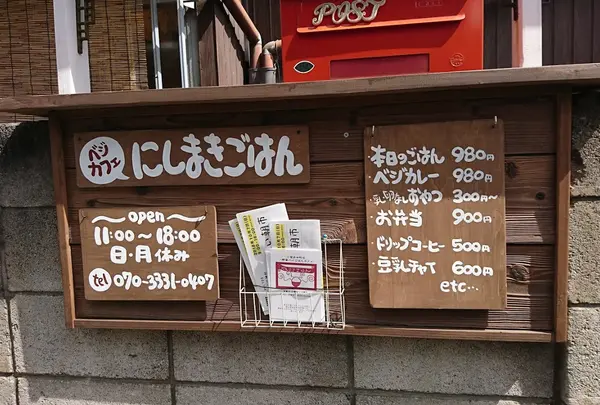 POST
ベジカフェ
にしまきごはん
open
11:00～18:00
日・月 休み
tel 070-3331-0407
本日のごはん 980円
ベジカレー 980円
・乳卵なしおやつ 300円～
・お弁当 900円
ドリップコーヒー 500円
・豆乳チャイ 600円
etc…
朝市